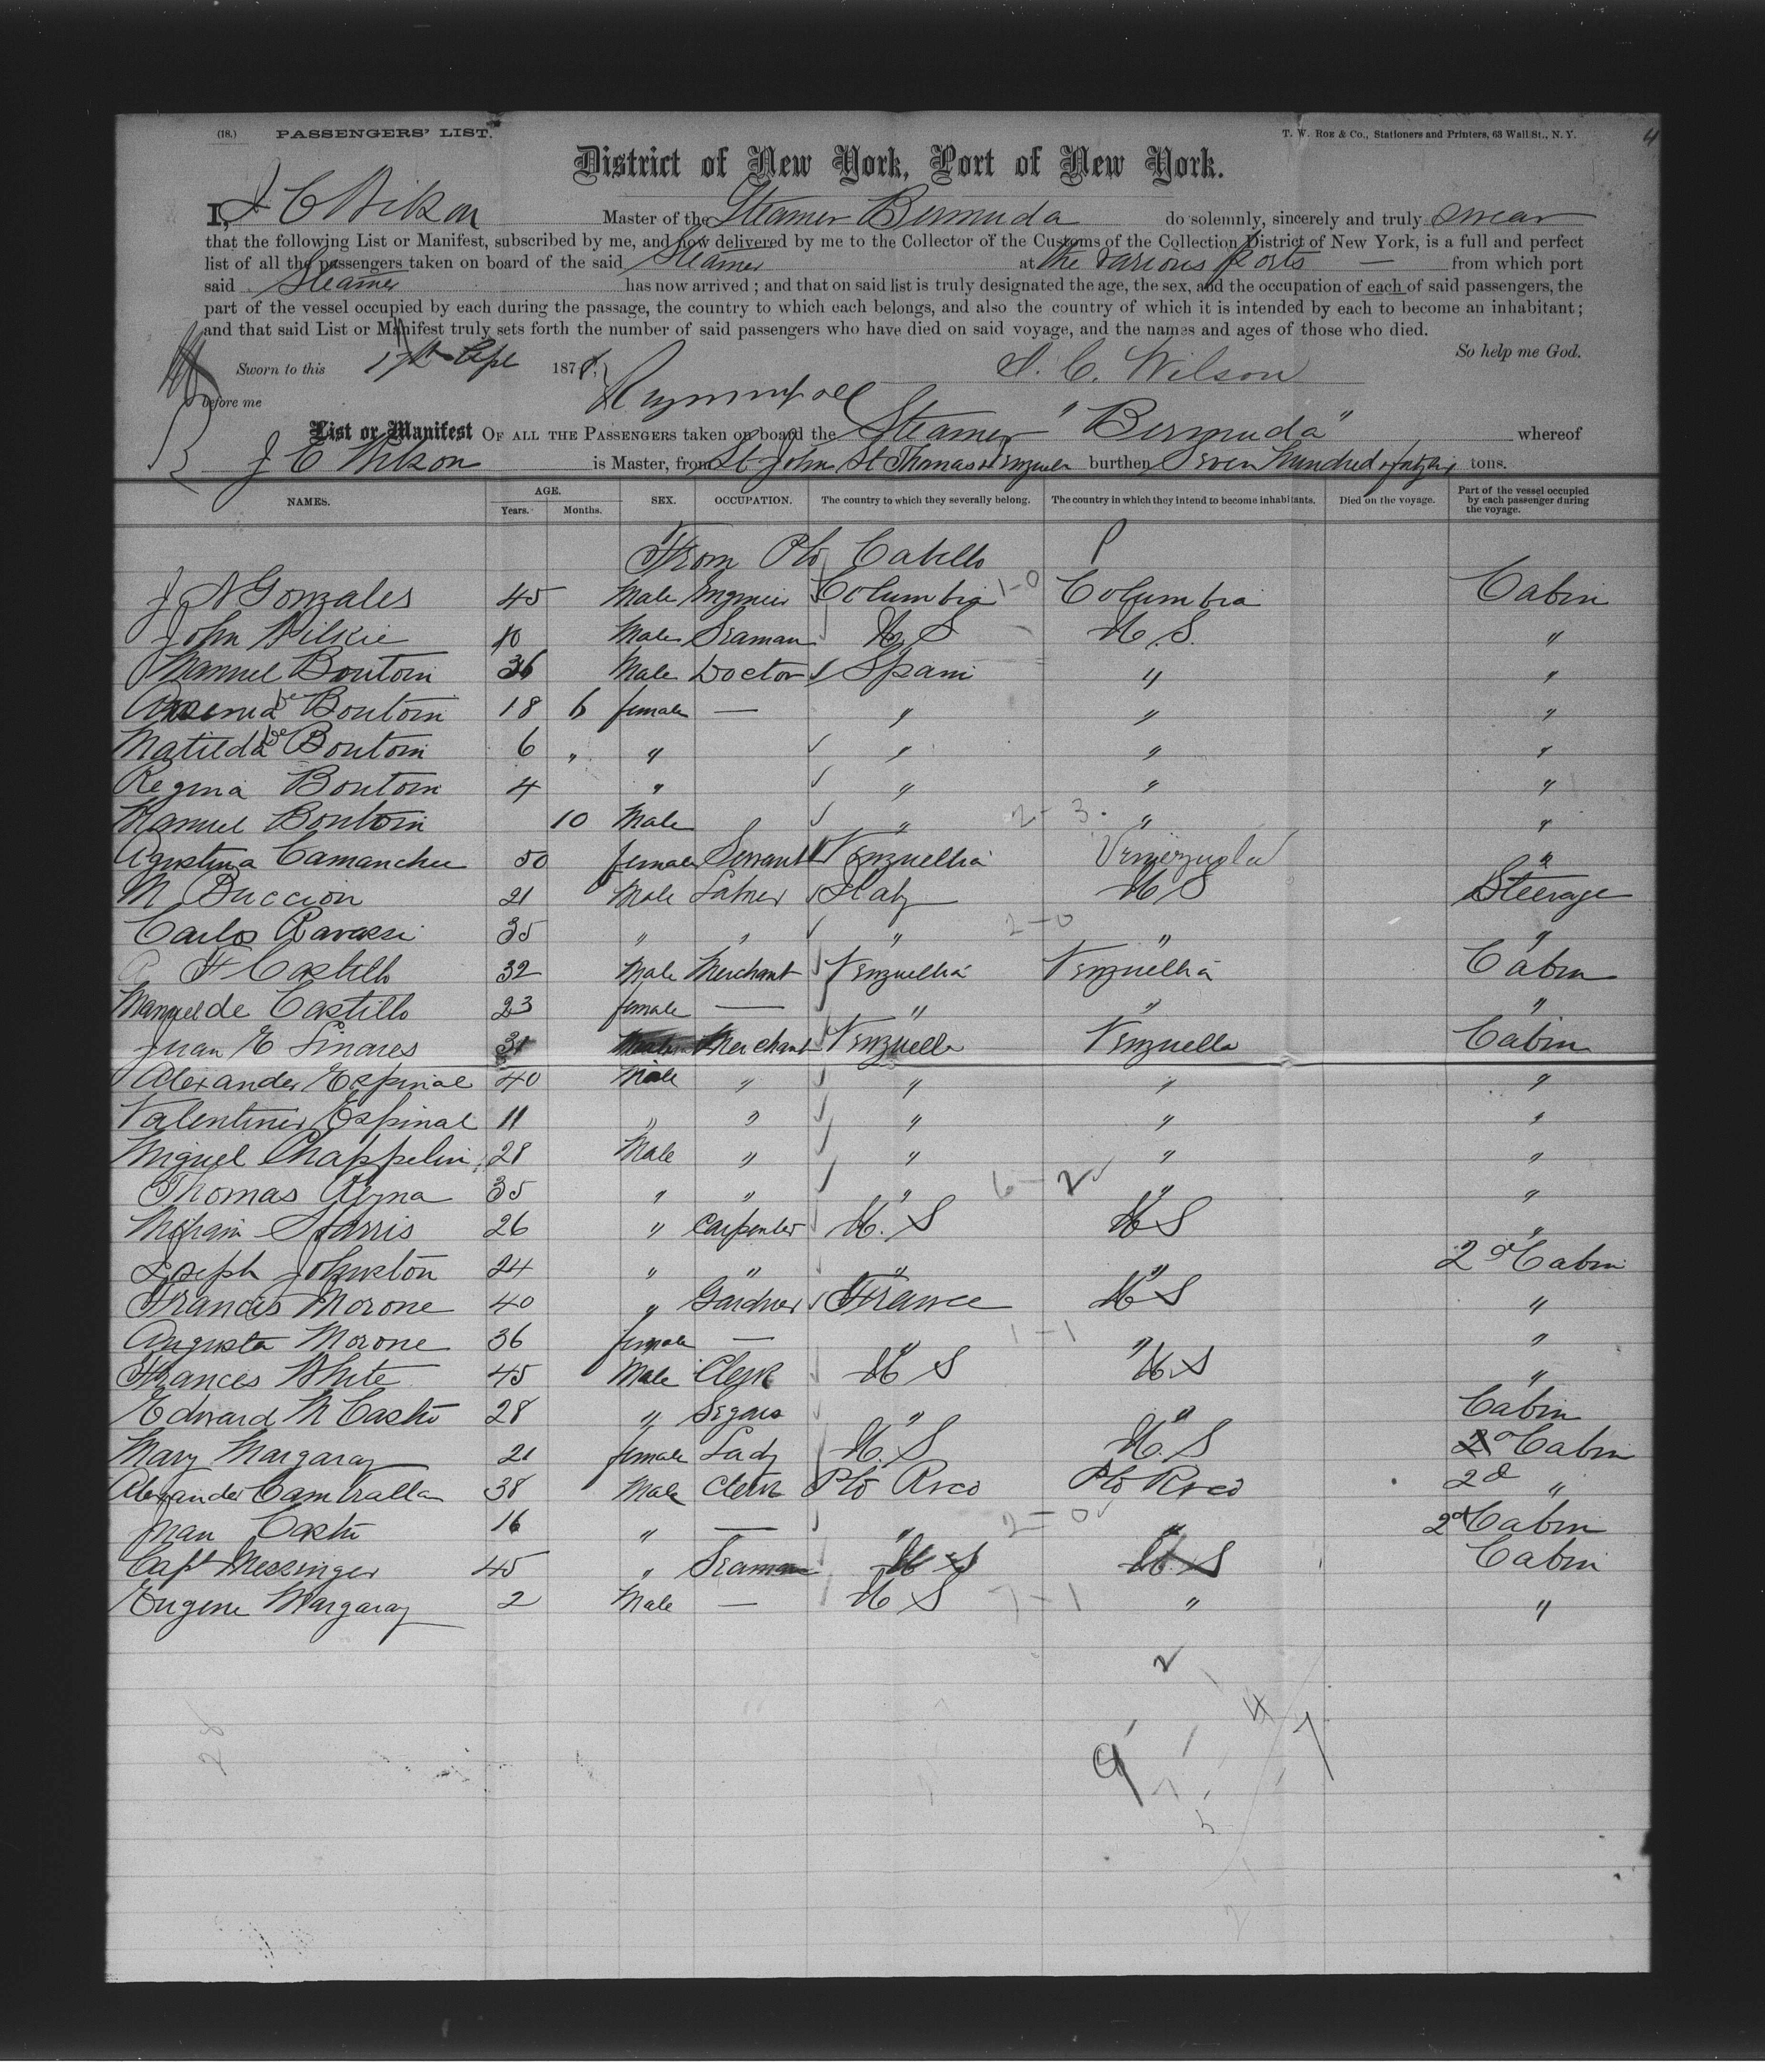 (18.) PASSENGERS' LIST. T. W. Roe & Co., Stationers and Printers, 63 Wall St., N. Y. 4
District of New York, Port of New York.
I, J C Wilson Master of the Steamer Bermuda do solemnly, sincerely and truly swear
that the following List or Manifest, subscribed by me, and now delivered by me to the Collector of the Customs of the Collection District of New York, is a full and perfect
list of all the passengers taken on board of the said Steamer at the various ports — from which port
said Steamer has now arrived; and that on said list is truly designated the age, the sex, and the occupation of each of said passengers, the
part of the vessel occupied by each during the passage, the country to which each belongs, and also the country of which it is intended by each to become an inhabitant;
and that said List or Manifest truly sets forth the number of said passengers who have died on said voyage, and the names and ages of those who died.
So help me God.
Sworn to this 17th Sept 187 J. C. Wilson
before me
List or Manifest OF ALL THE PASSENGERS taken on board the Steamer "Bermuda" whereof
J C Wilson is Master, from St John St Thomas burthen Seven Hundred tons.
NAMES. AGE. Years. Months. SEX. OCCUPATION. The country to which they severally belong. The country in which they intend to become inhabitants. Died on the voyage. Part of the vessel occupied by each passenger during the voyage.
From Pto Cabello
J N Gonzales 45 Male Columbia 1-0 Columbia Cabin
John Wilkie 10 Male Seaman U S U. S. "
Manuel Boutoin 36 Male Doctor Spain " "
Boutoin 18 6 female — " " "
Matilda Boutoin 6 " " " " "
Regina Boutoin 4 " " " "
Manuel Boutoin 10 Male " 2-3 " "
Agustina Camanchu 50 female Servant Venzuellia Venerzuela "
M Buccion 21 Male Italy U S Steerage
Carlos Ravassi 35 " " " 2-0 " "
F Castillo 32 Male Merchant Venzuellia Venzuellia Cabin
Manuel de Castillo 23 female — " " "
Juan E Linares 31 Merchant Venzuella Venzuella Cabin
Alexander Espinal 40 Male " " " "
Valentiner Espinal 11 " " " " "
Miguel Chappelin 28 Male " " " "
Thomas Reyna 35 " " " 6-2 " "
Harris 26 " Carpenter U. S U S "
Joseph Johnston 24 " " " " 2d Cabin
Francis Morone 40 " Gardner France U S "
Augusta Morone 36 female — " 1-1 " "
Frances White 45 Male Clerk U S U.S "
Edward M Castro 28 " Segars " " Cabin
Mary Margaray 21 female Lady U. S U. S 2d Cabin
Alexander Cambralla 38 Male Clerk Pto Rico Pto Rico 2d "
Juan Castro 16 " — " 2-0 " 2d Cabin
Capt Messinger 45 " Seaman U S U. S Cabin
Eugene Margaray 2 Male — U S 7-1 " "
2
4 7
9